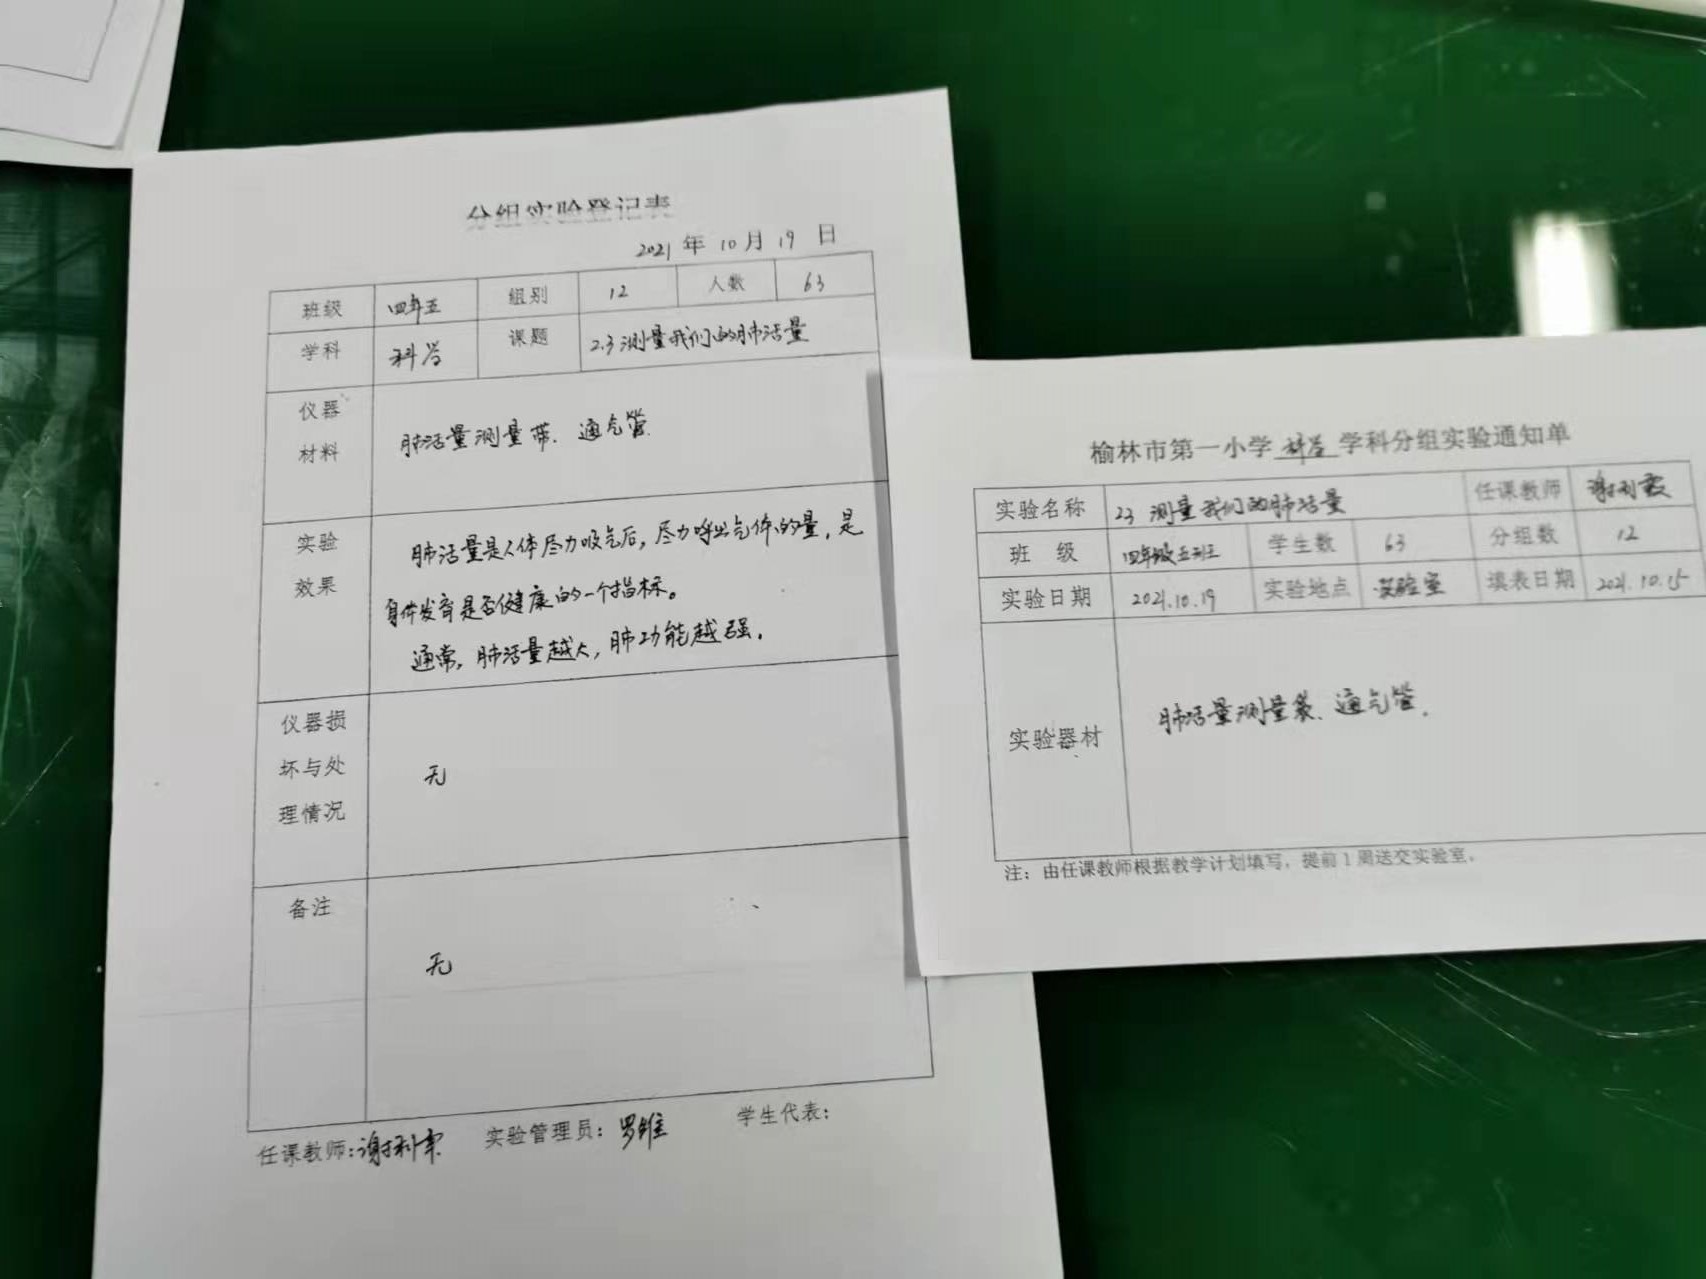 分组实验登记表
2021年10月19日
班级 四年五 组别 12 人数 63
学科 科学 课题 2.3测量我们的肺活量
仪器材料 肺活量测量带、通气管
实验效果 肺活量是人体尽力吸气后,尽力呼出气体的量,是
身体发育是否健康的一个指标。
通常,肺活量越大,肺功能越强。
仪器损坏与处理情况 无
备注 无
任课教师: 实验管理员:罗维 学生代表:
榆林市第一小学 科学 学科分组实验通知单
实验名称 2.3 测量我们的肺活量 任课教师
班 级 四年级五班 学生数 63 分组数 12
实验日期 2021.10.19 实验地点 实验室 填表日期 2021.10.15
实验器材 肺活量测量袋、通气管.
注:由任课教师根据教学计划填写,提前1周送交实验室。